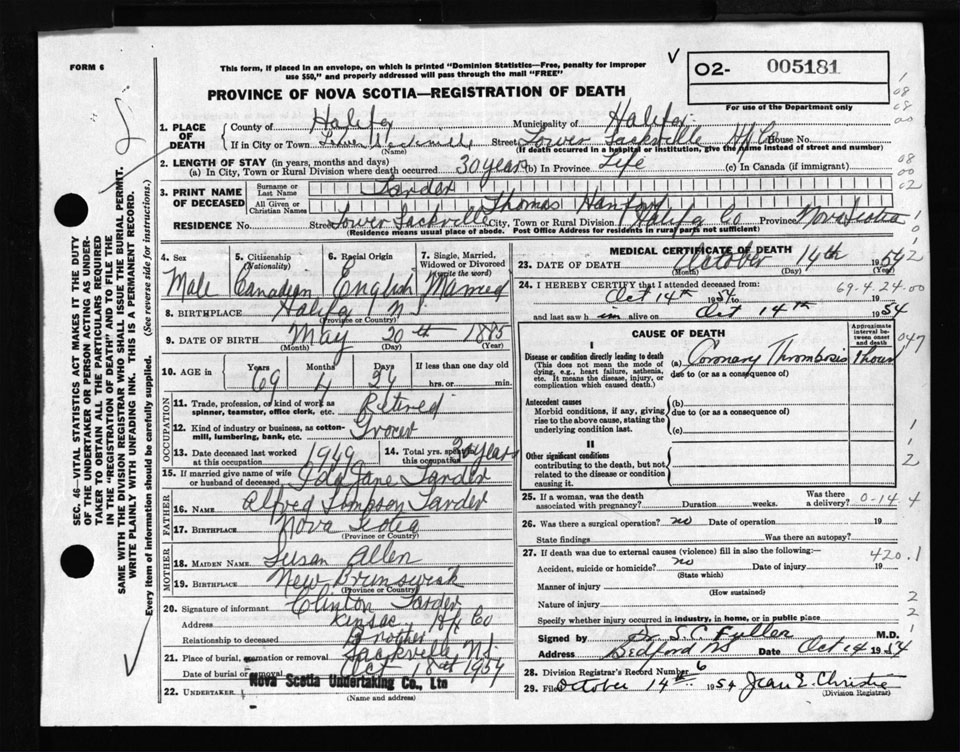 FORM 6
This form, if placed in an envelope, on which is printed "Dominion Statistics—Free, penalty for improper
use $50," and properly addressed will pass through the mail "FREE"
PROVINCE OF NOVA SCOTIA—REGISTRATION OF DEATH
V
02- 005181
For use of the Department only
SEC. 46—VITAL STATISTICS ACT MAKES IT THE DUTY
OF THE UNDERTAKER OR PERSON ACTING AS UNDER-
TAKER TO OBTAIN ALL THE PARTICULARS REQUIRED
IN THE "REGISTRATION OF DEATH" AND TO FILE THE
SAME WITH THE DIVISION REGISTRAR WHO SHALL ISSUE THE BURIAL PERMIT.
WRITE PLAINLY WITH UNFADING INK. THIS IS A PERMANENT RECORD.
Every item of information should be carefully supplied. (See reverse side for instructions.)
1. PLACE OF DEATH County of Halifax Municipality of Halifax
If in City or Town Lower Sackville (Name) Street Lower Sackville Hfx Co House No.
(If death occurred in a hospital or institution, give the name instead of street and number)
2. LENGTH OF STAY (in years, months and days)
(a) In City, Town or Rural Division where death occurred 30 years (b) In Province Life (c) In Canada (if immigrant)
3. PRINT NAME OF DECEASED Surname or Last Name
All Given or Christian Names Thomas Hanford
RESIDENCE No. Street Lower Sackville City, Town or Rural Division Halifax Co Province Nova Scotia
(Residence means usual place of abode. Post Office Address for residents in rural parts not sufficient)
4. Sex Male
5. Citizenship (Nationality) Canadian
6. Racial Origin English
7. Single, Married, Widowed or Divorced (write the word) Married
8. BIRTHPLACE Halifax N S (Province or Country)
9. DATE OF BIRTH May (Month) 20th (Day) 1885 (Year)
10. AGE in Years 69 Months 4 Days 24 If less than one day hrs. or min.
OCCUPATION
11. Trade, profession, or kind of work as spinner, teamster, office clerk, etc. Retired
12. Kind of industry or business, as cotton-mill, lumbering, bank, etc. Grocer
13. Date deceased last worked at this occupation 1949 14. Total yrs. spent in this occupation years
15. If married give name of wife or husband of deceased Ida Jane
FATHER
16. NAME Alfred Simpson
17. BIRTHPLACE Nova Scotia (Province or Country)
MOTHER
18. MAIDEN NAME Susan Allen
19. BIRTHPLACE New Brunswick (Province or Country)
20. Signature of informant Clinton
Address Kinsac Hfx Co
Relationship to deceased Brother
21. Place of burial, cremation or removal Sackville N.S.
Date of burial or removal Oct 1954
22. UNDERTAKER Nova Scotia Undertaking Co., Ltd
(Name and address)
MEDICAL CERTIFICATE OF DEATH
23. DATE OF DEATH October (Month) 14th (Day) 1954 (Year)
24. I HEREBY CERTIFY that I attended deceased from
Oct 14th 1954 69.4.24.00
and last saw him alive on Oct 14th 1954
CAUSE OF DEATH
Approximate interval between onset and death
I
Disease or condition directly leading to death (a) Coronary Thrombosis 1 hour
(This does not mean the mode of dying, e.g., heart failure, asthenia, etc. It means the disease, injury, or complication which caused death.)
due to (or as a consequence of)
Antecedent causes (b)
Morbid conditions, if any, giving rise to the above cause, stating the underlying condition last.
due to (or as a consequence of)
(c)
II
Other significant conditions
contributing to the death, but not related to the disease or condition causing it.
25. If a woman, was the death associated with pregnancy? Duration weeks. Was there a delivery? 0-14.4
26. Was there a surgical operation? no Date of operation 19
State findings Was there an autopsy?
27. If death was due to external causes (violence) fill in also the following:— 420.1
Accident, suicide or homicide? no (State which) Date of injury 19
Manner of injury (How sustained)
Nature of injury
Specify whether injury occurred in industry, in home, or in public place
Signed by Dr. S.C. Fuller M.D.
Address Bedford NS Date Oct 14 1954
28. Division Registrar's Record Number 6
29. Filed October 14th 1954 Jean E. Christie
(Division Registrar)